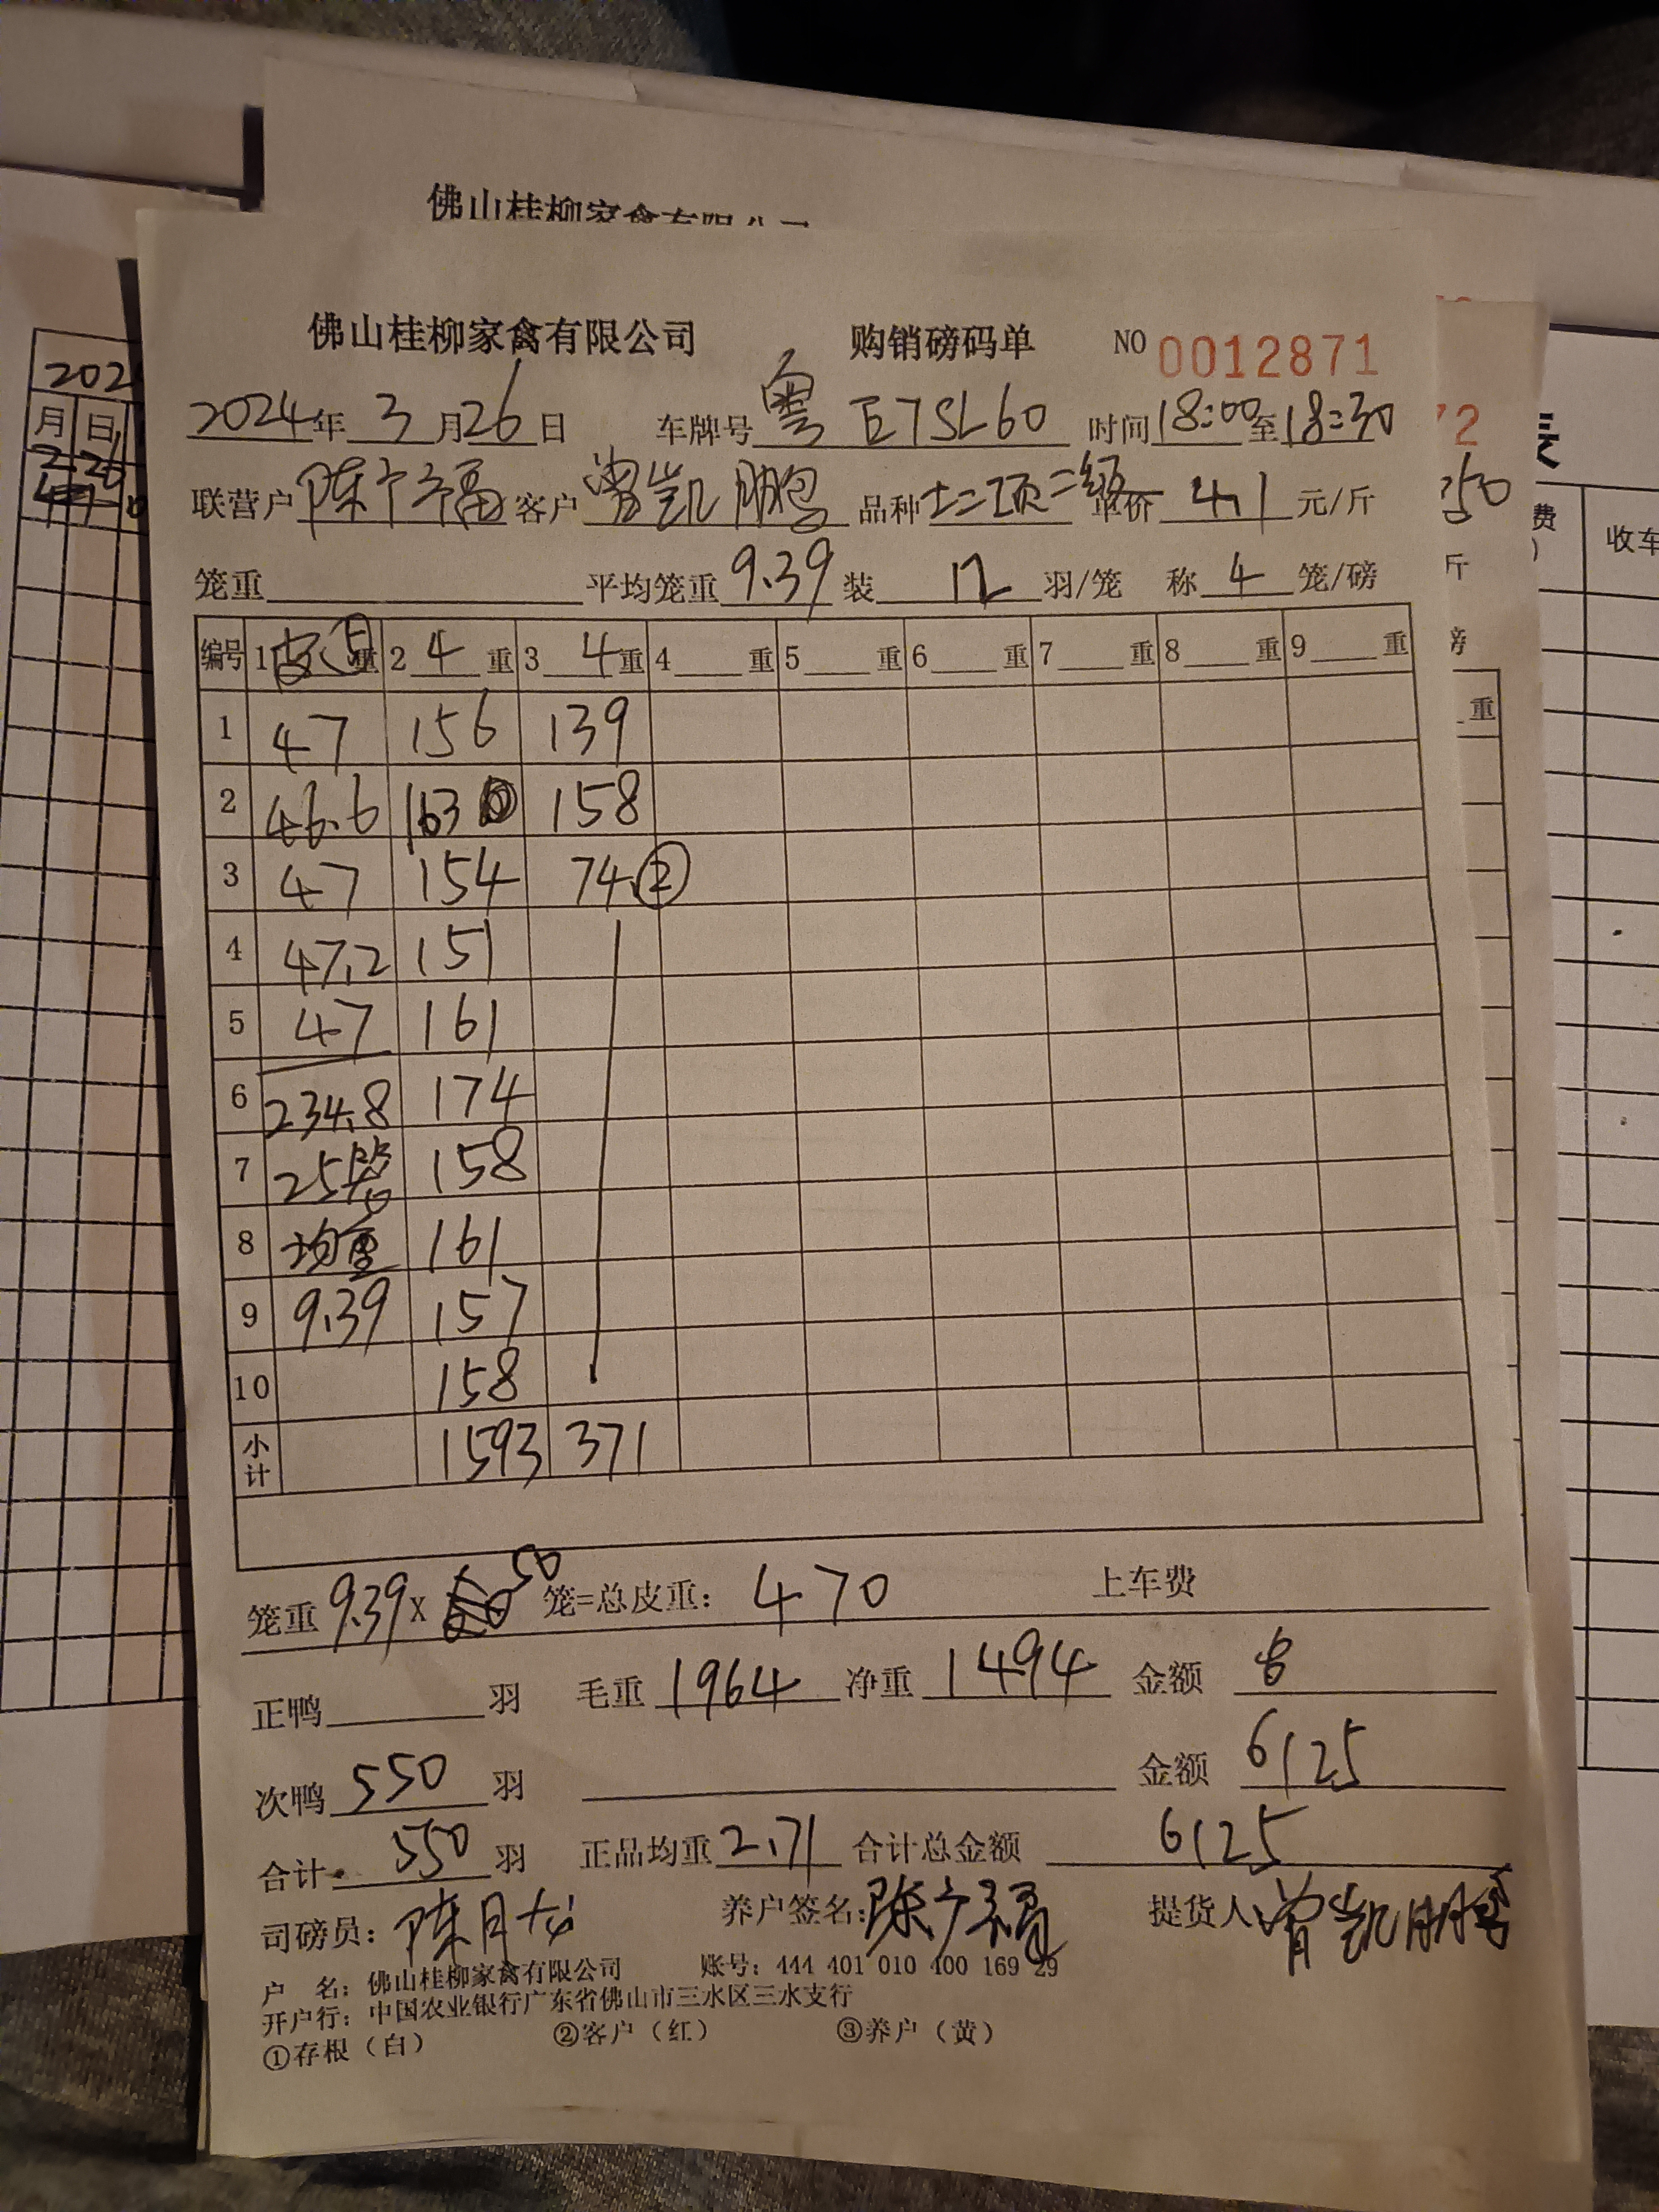 佛山桂柳家禽有限公司
佛山桂柳家禽有限公司 购销磅码单 NO 0012871
2024年 3月26日 车牌号 粤E7SL60 时间18:00至18:30
联营户 陈广福 客户 曾凯鹏 品种 二级 单价 4.1 元/斤
笼重 平均笼重 9.39 装 12 羽/笼 称 4 笼/磅
编号 1 皮⑤重 2 4 重 3 4 重 4 重 5 重 6 重 7 重 8 重 9 重
1 47 156 139
2 46.6 163 158
3 47 154 74 ②
4 47.2 151
5 47 161
6 234.8 174
7 25笼 158
8 均重 161
9 9.39 157
10 158
小计 1593 371
笼重 9.39 x 50 笼=总皮重: 470 上车费
正鸭 羽 毛重 1964 净重 1494 金额
次鸭 550 羽 金额 6125
合计 550 羽 正品均重 2.71 合计总金额 6125
司磅员: 陈月 养户签名: 陈广福 提货人 曾凯鹏
户 名: 佛山桂柳家禽有限公司 账号: 444 401 010 400 169 29
开户行: 中国农业银行广东省佛山市三水区三水支行
①存根(白) ②客户(红) ③养户(黄)
202
月 日
费
收车
72
350
斤
磅
重